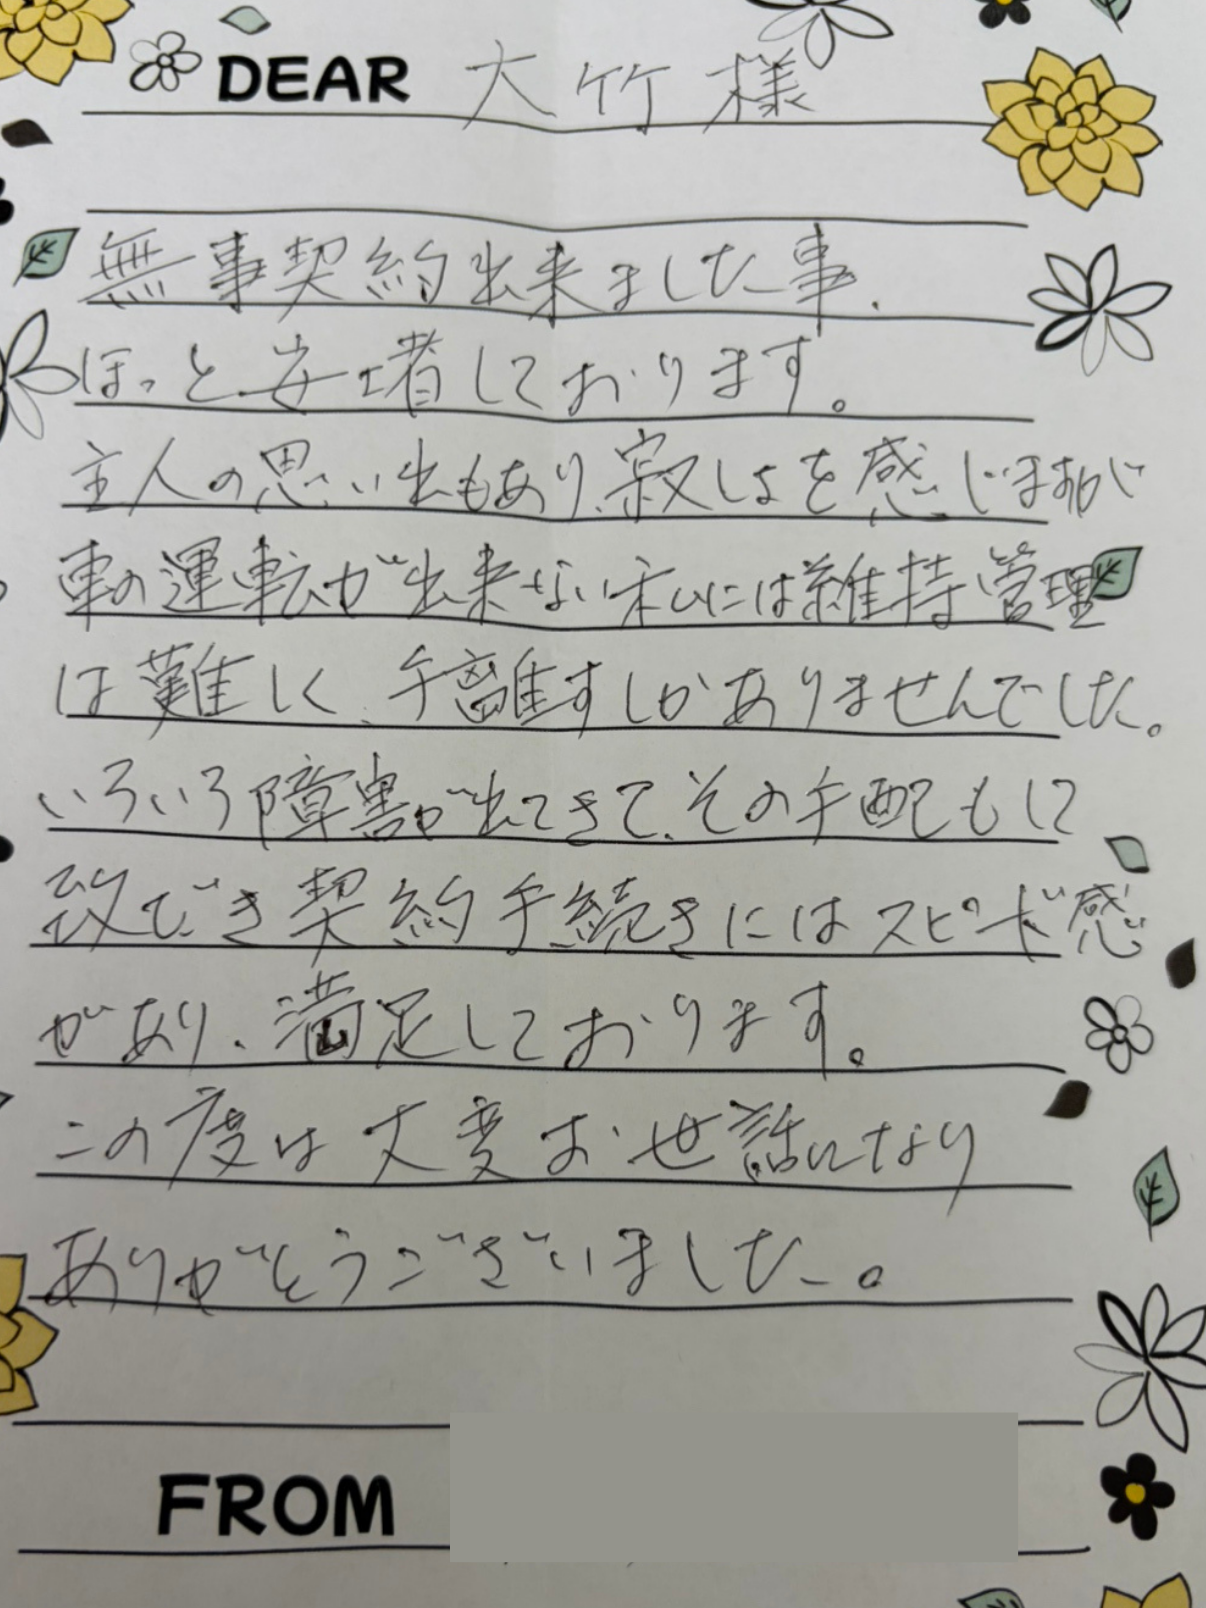 DEAR 大竹様
無事契約出来ました事、
ほっと安堵しております。
主人の思い出もあり、寂しさを感じますが
車の運転が出来ない私には維持管理
は難しく、手離すしかありませんでした。
いろいろ障害が出てきて、その手配もして
致でき契約手続きにはスピード感
があり、満足しております。
この度は大変お世話になり
ありがとうございました。
FROM